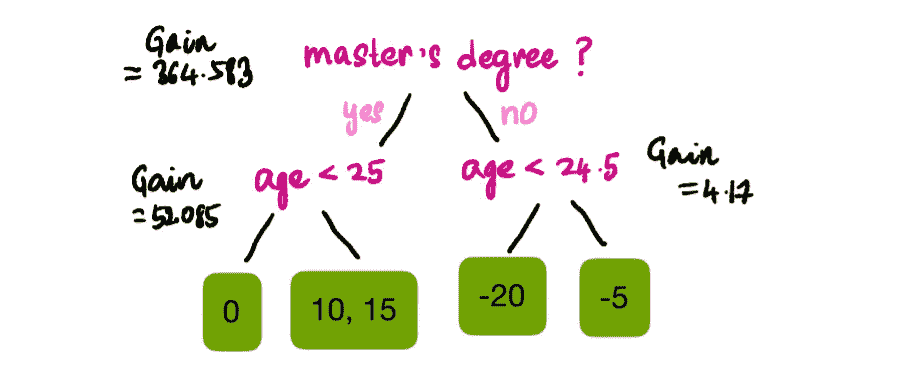 Gain
= 364.583
master's degree ?
yes
no
Gain
= 52.085
age < 25
age < 24.5
Gain
= 4.17
0
10, 15
-20
-5